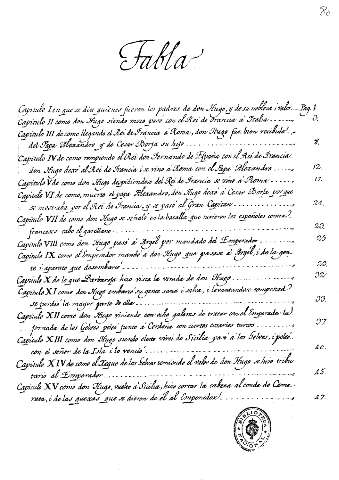 Tabla
Capitulo I en que se diu quienes fueron los padres de don Hugo, y de su nobleza i valor. Pag. 1.
Capitulo II como don Hugo siendo mozo pasó con el Rei de Francia á Italia
Capitulo III de como llegando el Rei de Francia a Roma, don Hugo fue bien recibido
del Papa Alexandro y de Cesar Borja su hijo
Capitulo IV de como rompiendo el Rei don Fernando de España con el Rei de Francia
don Hugo dexó al Rei de Francia i se vino a Roma con el Papa Alexandro 12.
Capitulo V de como don Hugo despidiendose del Rei de Francia se vino á Roma 17.
Capitulo VI de como, muerto el papa Alexandro, don Hugo dexó á Cesar Borja porque
se mostraba por el Rei de Francia, y se pasó al Gran Capitan 21.
Capitulo VII de como don Hugo se señaló en la batalla que tuvieron los españoles contra
franceses cabo el garellano
Capitulo VIII como don Hugo pasó á Argel por mandado del Emperador
Capitulo IX como el Emperador mandó á don Hugo que pasase á Argel, i de la gen-
te i aparato que desembarcó
Capitulo X de lo que Barbaroja hizo vista la venida de don Hugo
Capitulo XI como don Hugo embarcó su gente sana i salva, i levantandose
se perdió la mayor parte de ella
Capitulo XII como don Hugo viniendo con ocho galeras de tratar con el Emperador la
jornada de los Gelves peleó junto a Cerdeña con ciertos cosarios turcos
Capitulo XIII como don Hugo siendo virei de Sicilia pasó á los Gelves, i peleó
con el señor de la Isla i lo venció
Capitulo XIV como el Xeque de los Gelves temiendo el valor de don Hugo se hizo tribu-
tario al Emperador
Capitulo XV como don Hugo, vuelto á Sicilia, hizo cortar la cabeza al conde de Came-
rata, i de las quexas que se dieron de él al Emperador